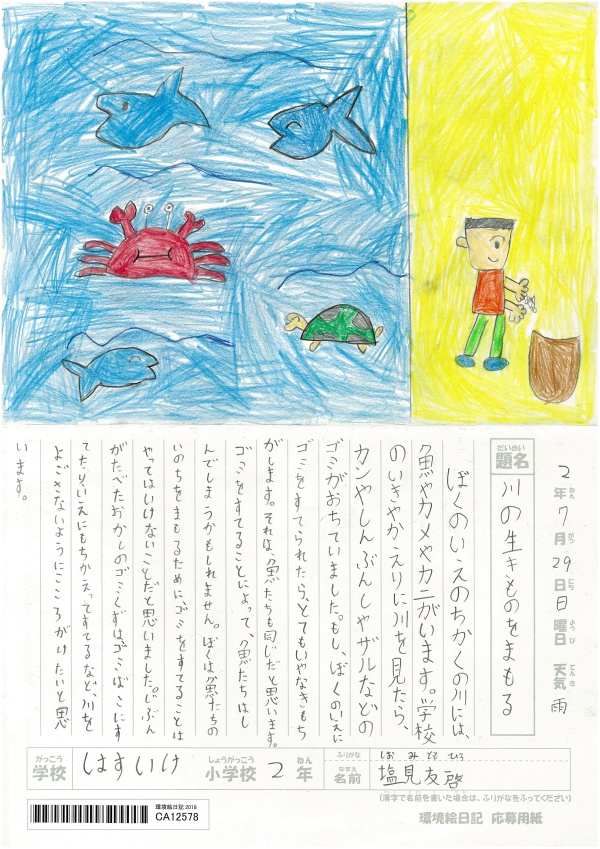 2年7月29日日曜日 天気 雨
ねん がつ にち ようび てんき
だいめい
題名 川の生きものをまもる
ぼくのいえのちかくの川には、
魚やカメやカニがいます。学校
のいきやかえりに川を見たら、
カンやしんぶんしやザルなどの
ゴミがおちていました。もし、ぼくのいえに
ゴミをすてられたら、とてもいやなきもち
がします。それは、魚たちも同じだと思います。
ゴミをすてることによって、魚たちはし
んでしまうかもしれません。ぼくは魚たちの
いのちをまもるためにゴミをすてることは
やってはいけないことだと思いました。じぶん
がたべたおかしのゴミくずはゴミばこにす
てたりいえにもちかえってすてるなど、川を
よごさないようにこころがけたいと思
います。
がっこう しょうがっこう ねん
学校 はすいけ 小学校 2年
ふりがな しおみ ともひろ
なまえ
名前 塩見友啓
(漢字で名前を書いた場合は、ふりがなをふってください)
環境絵日記 2018
CA12578
環境絵日記 応募用紙